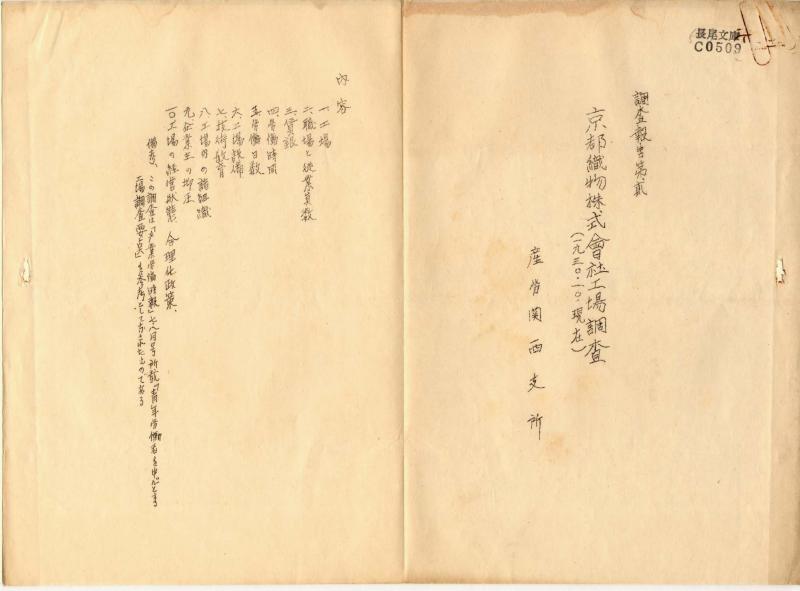 長尾文庫
C0509
調査報告第貳
京都織物株式會社工場調査
(一九三〇・一〇・現在)
産労関西支所
内容
一、工場
二、職場と従業員数
三、賃銀
四、労働時間
五、労働日数
六、工場設備
七、技術教育
八、工場内の諸組織
九、企業主の抑圧
一〇、工場の経営状態、合理化政策、
備考、この調査は「産業労働時報」七八月号所載「青年労働者を中心とする
工場調査要点」を参考として出来たものである